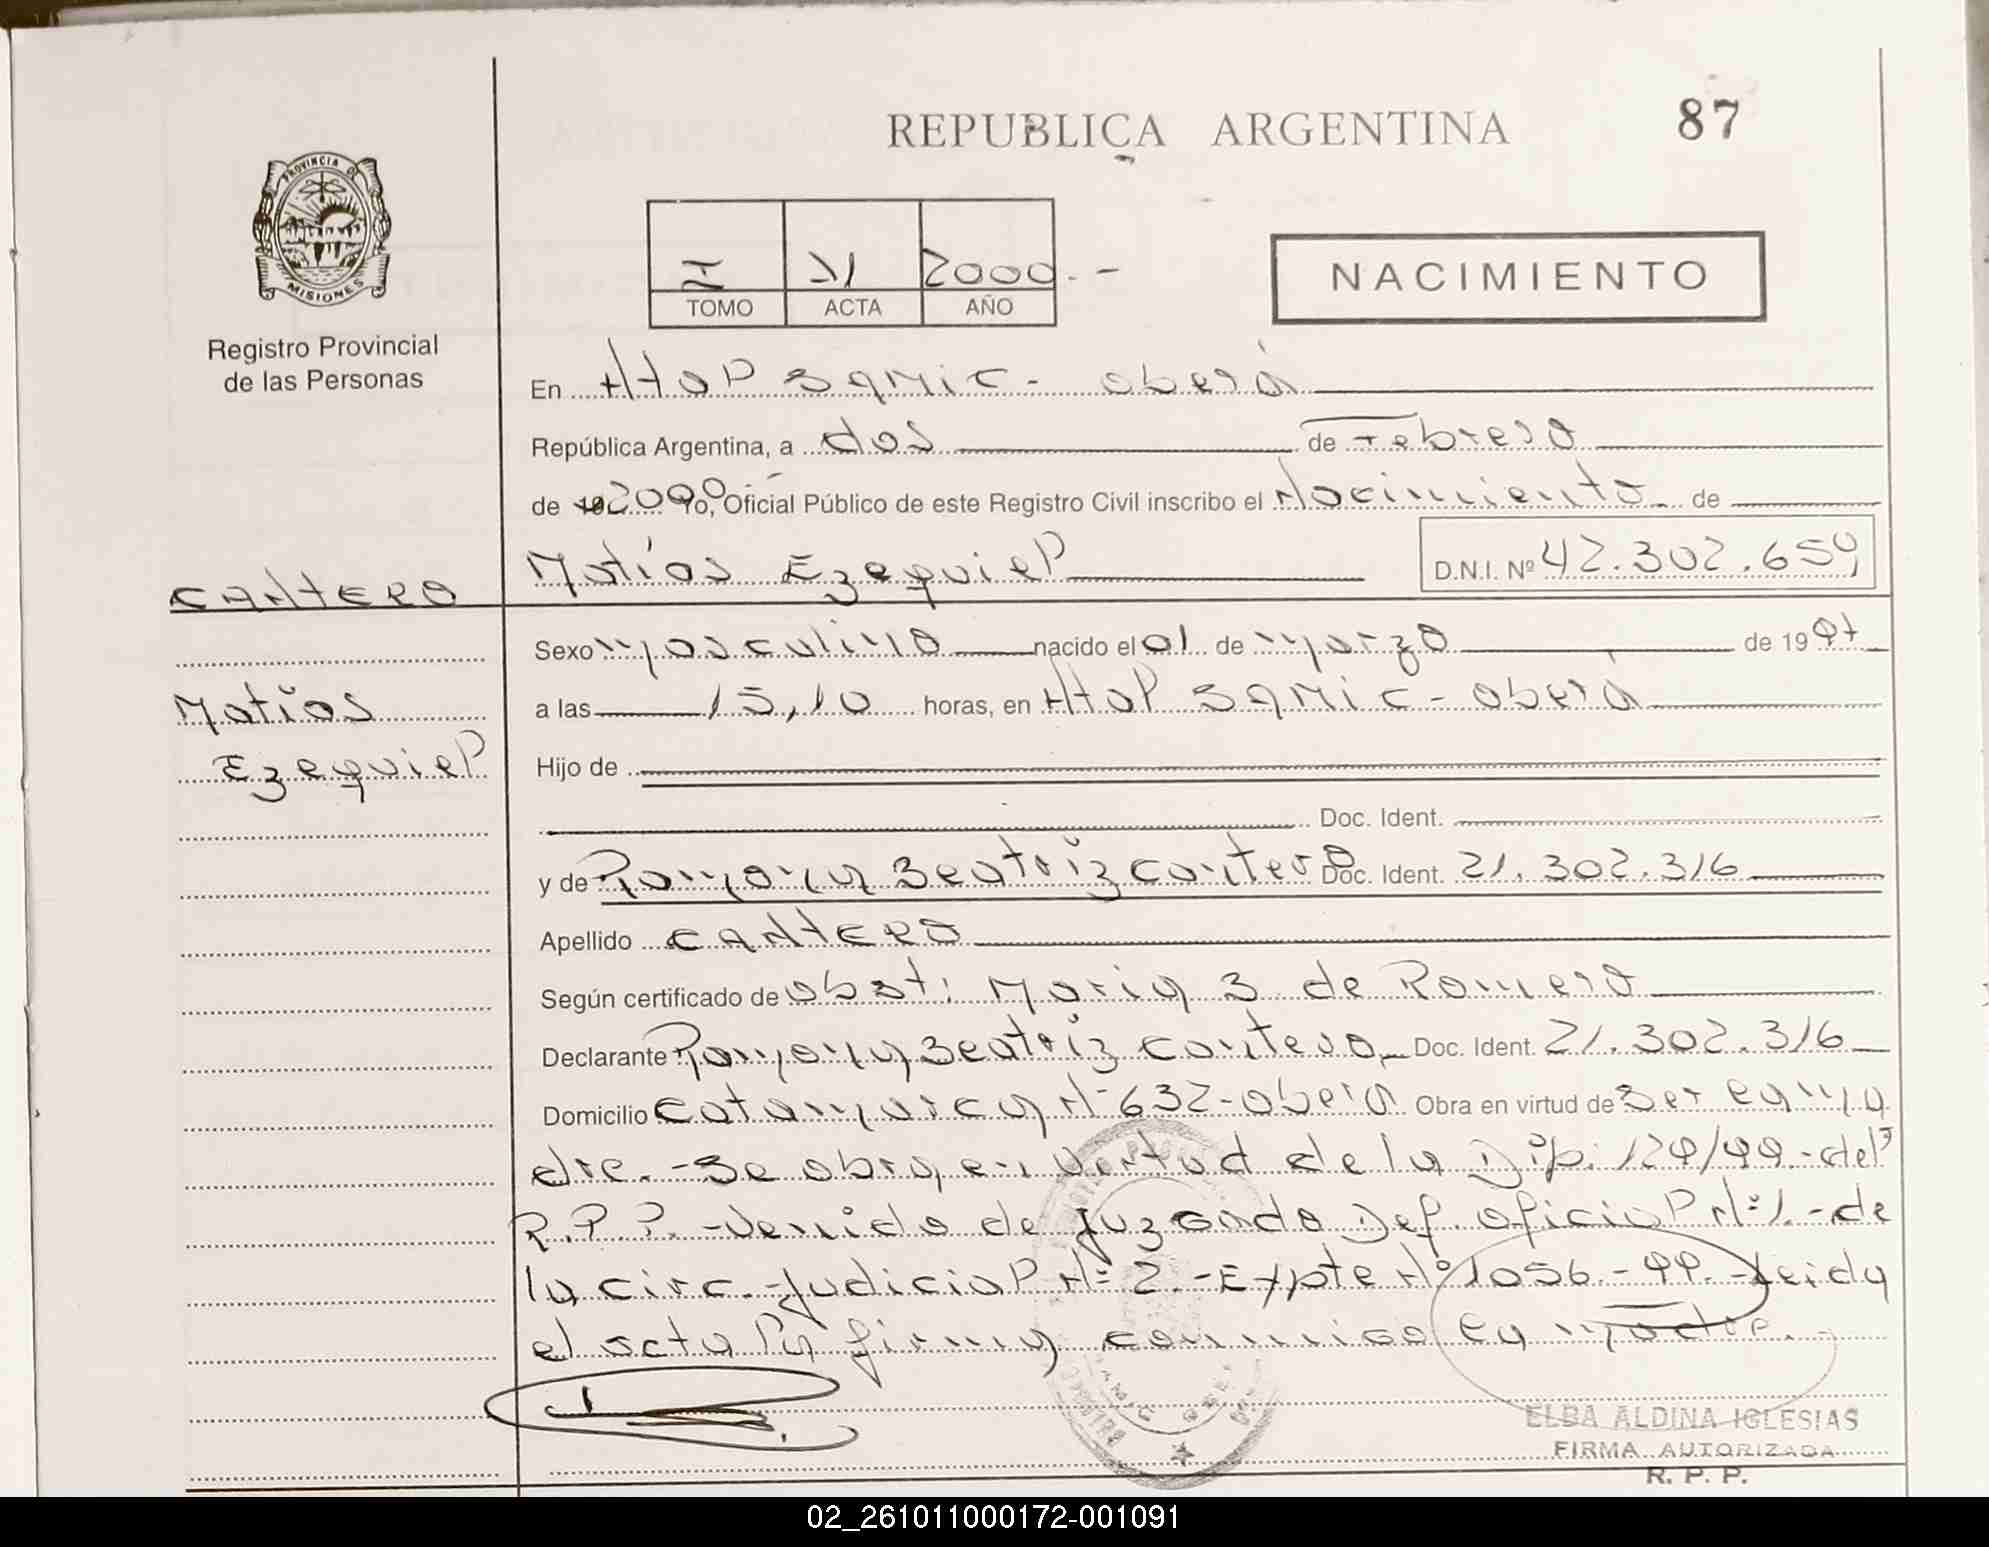 REPUBLICA ARGENTINA
87
PROVINCIA DE
MISIONES
Registro Provincial
de las Personas
I 21 2000.-
TOMO ACTA AÑO
NACIMIENTO
En Htal Samic - oberá
República Argentina, a dos de Febrero
de 19 2000 Yo, Oficial Público de este Registro Civil inscribo el Nacimiento de
Matías Ezequiel D.N.I. Nº 42.302.659
CANTERO
Sexo masculino nacido el 01 de marzo de 19 97
Matías
a las 15,10 horas, en Htal Samic - oberá
Ezequiel
Hijo de
Doc. Ident.
y de Ramona Beatriz cantero Doc. Ident. 21.302.316
Apellido CANTERO
Según certificado de obst: Maria S de Romero
Declarante Ramona Beatriz cantero Doc. Ident. 21.302.316
Domicilio catamarca Nº 632-oberá Obra en virtud de Ser la ma
dre.-Se obra en virtud de la Dip: 129/99.-del
R.P.P.-venido de juzgado Def. oficial Nº1.-de
la circ.-Judicial Nº 2.-Expte Nº 1056.-99.-Leida
el acta la firma conmigo la madre.-
ELBA ALDINA IGLESIAS
FIRMA AUTORIZADA
R. P. P.
02_261011000172-001091